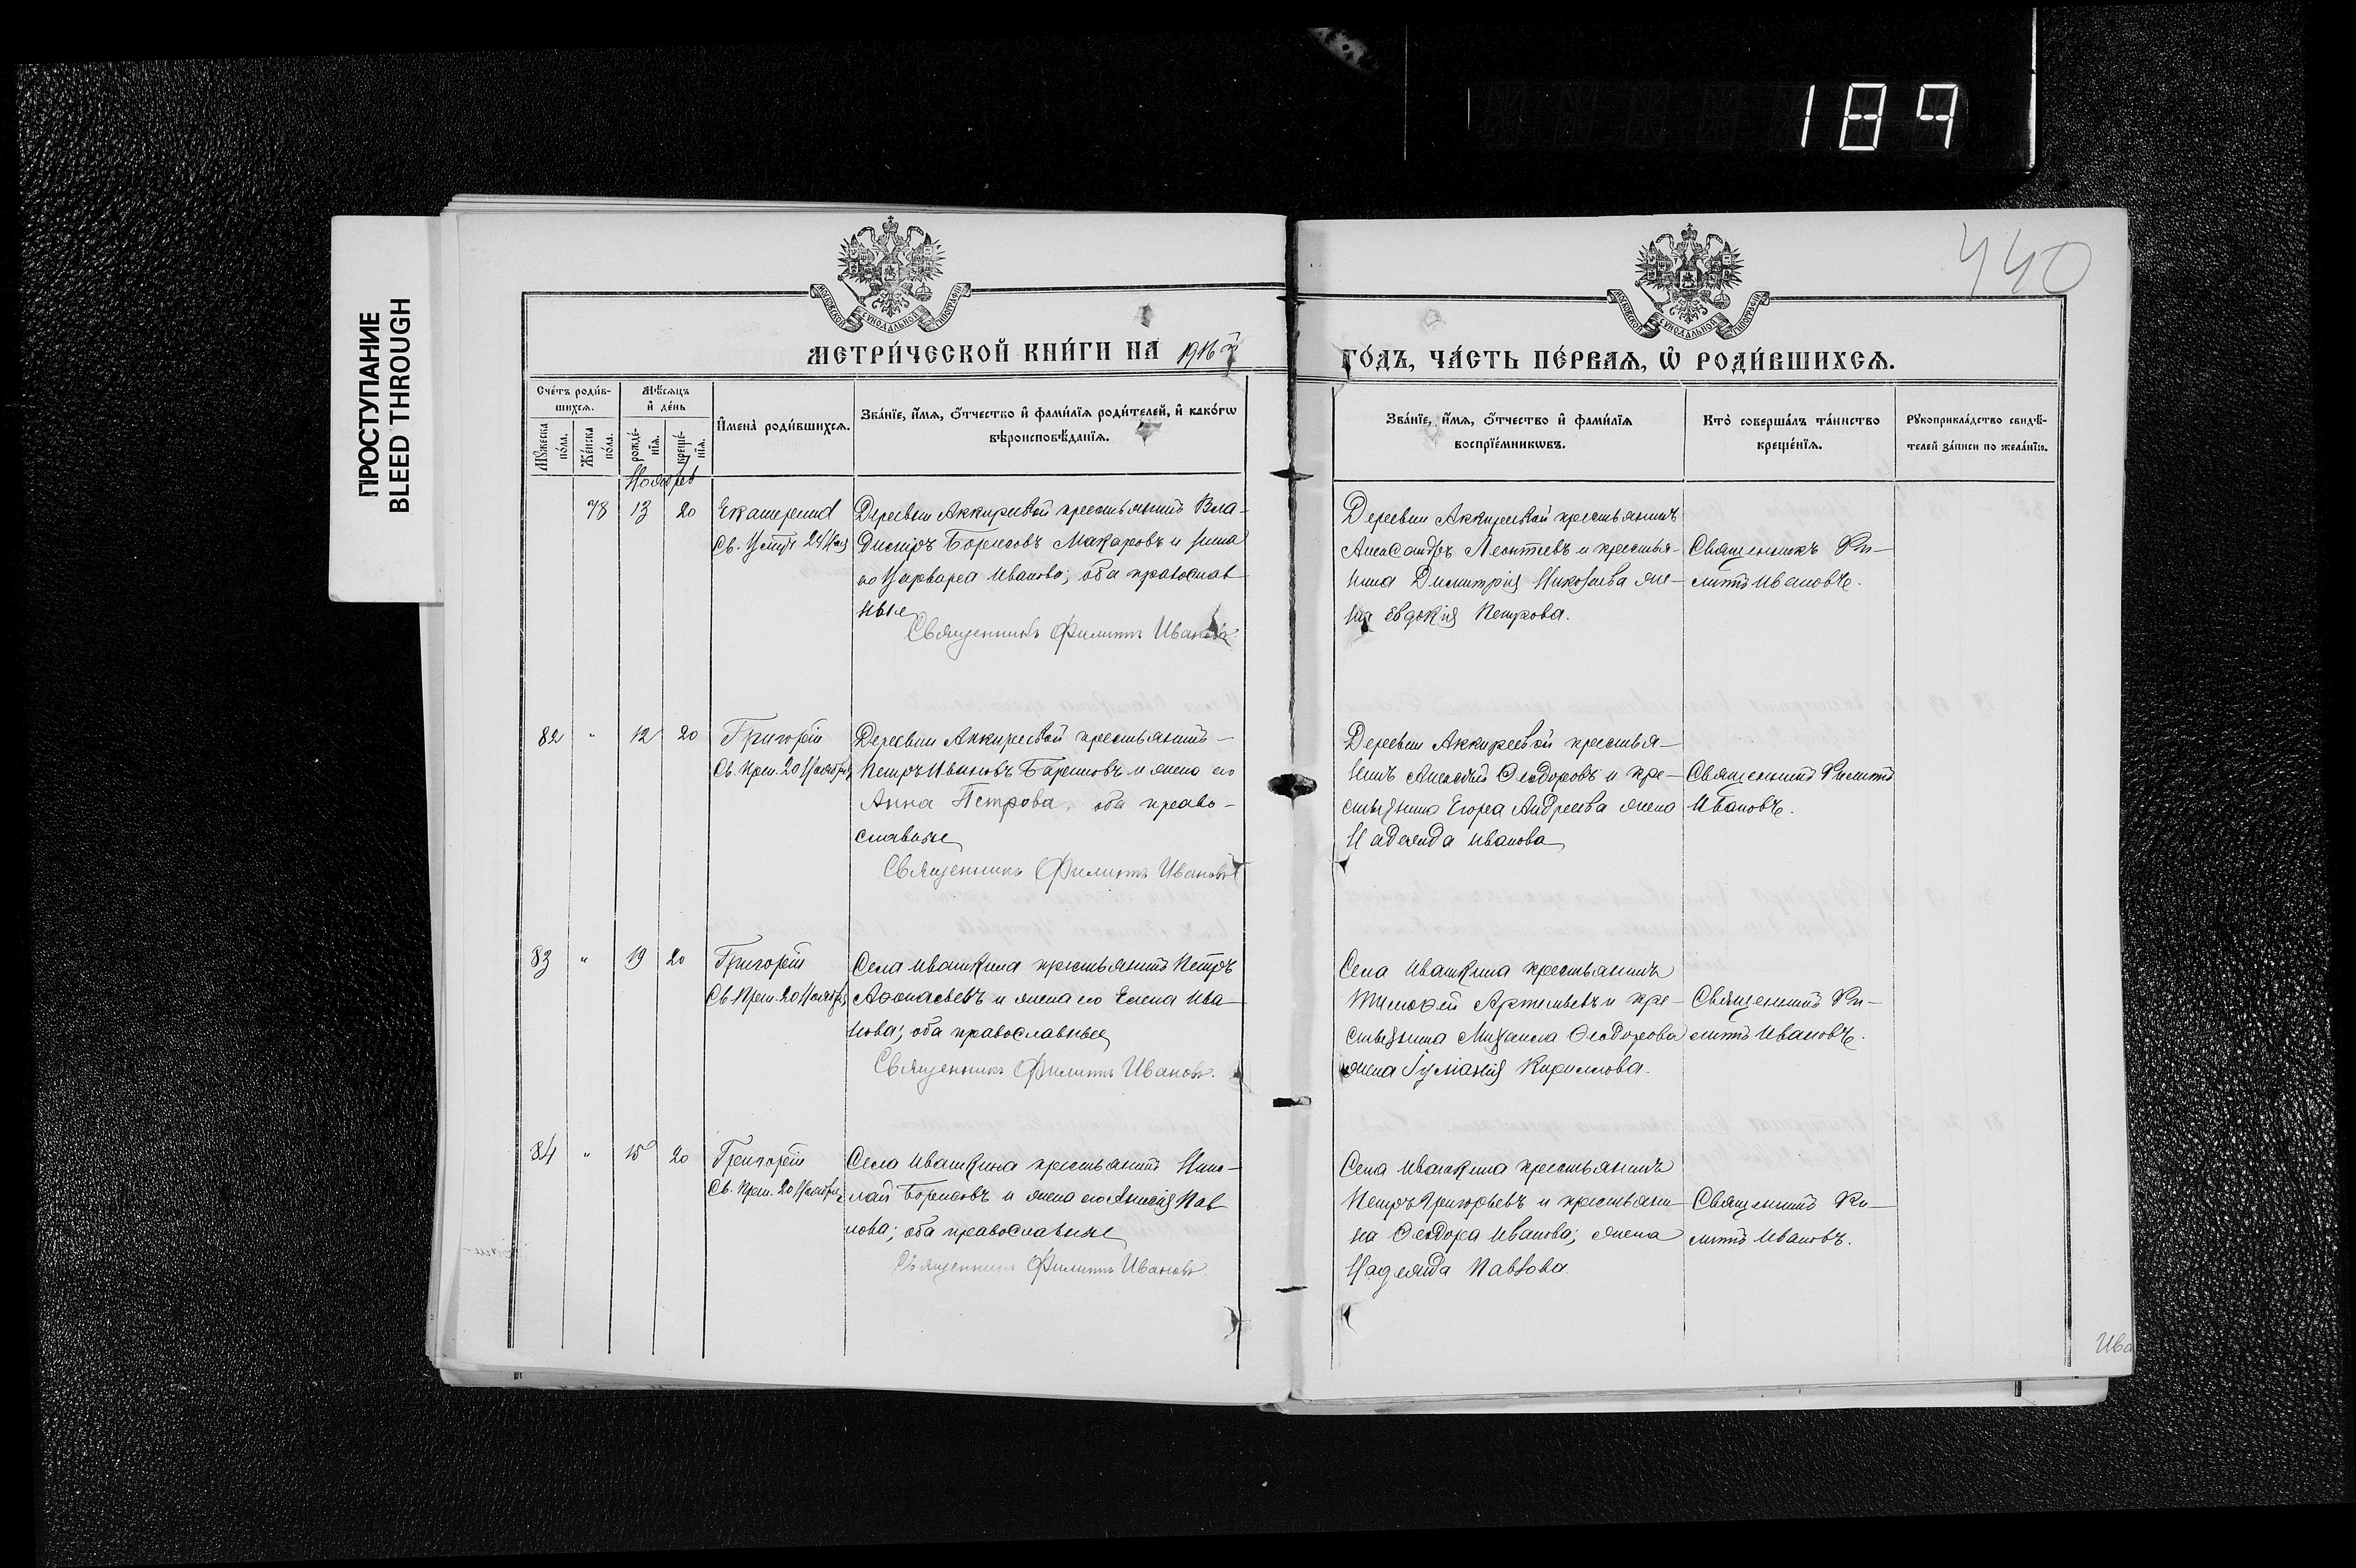 189
ПРОСТУПАНИЕ
BLEED THROUGH
440
МОСКОВСКОЙ СѴНОДАЛЬНОЙ ТИПОГРАФІИ
МОСКОВСКОЙ СѴНОДАЛЬНОЙ ТИПОГРАФІИ
МЕТРИ́ЧЕСКОЙ КНИ́ГИ НА 1916 й
ГО́ДЪ, ЧА́СТЬ ПЕ́РВАЯ, Ѿ РОДИ́ВШИХСЯ.
Сче́тъ роди́в-
шихся.
Мѣ́сяцъ
и҆ де́нь
Мꙋ́жеска
по́ла.
Же́нска
по́ла.
рожде́-
нїѧ.
креще́-
нїѧ.
И҆мена̀ роди́вшихсѧ.
Зва́нїе, и҆́мѧ, ѻ҆́тчество и҆ фами́лїѧ роди́телей, и҆ како́гѡ
вѣроисповѣ́данїѧ.
Зва́нїе, и҆́мѧ, ѻ҆́тчество и҆ фами́лїѧ
воспрїе́мникѡвъ.
Кто̀ соверша́лъ та́инство
креще́нїѧ.
Рꙋкоприкла́дство свидѣ́-
телей за́писи по жела́нїю.
Ноябрь
78 13 20 Екатерина
Св. 24 Ноя
Деревни Аккиреевой крестьянинъ Вла-
димиръ Борисовъ Макаровъ и жена
его Варвара Иванова; оба православ
ные
Священникъ Филиппъ Ивановъ
Деревни Аккиреевой крестьянинъ
Александръ Леонтьевъ и крестья-
нина Димитрія Николаева же-
на Евдокія Петрова.
Священникъ Фи-
липпъ Ивановъ.
82 " 12 20 Григорій
Св. Прп. 20 Ноября
Деревни Аккиреевой крестьянинъ
Петръ Ивановъ Борисовъ и жена его
Анна Петрова, оба право-
славные
Священникъ Филиппъ Ивановъ
Деревни Аккиреевой крестья-
нинъ Алексѣй Ѳеодоровъ и кре-
стьянина Егора Андреева жена
Надежда Иванова
Священникъ Филиппъ
Ивановъ.
83 " 19 20 Григорій
Св. Прп. 20 Ноября
Села Ивашкина крестьянинъ Петръ
Аѳонасьевъ и жена его Елена Ива-
нова; оба православные
Священникъ Филиппъ Ивановъ.
Села Ивашкина крестьянинъ
Тимоѳей Артемьевъ и кре-
стьянина Михаила Ѳеодорова
жена Іуліанія Кириллова.
Священникъ Фи-
липпъ Ивановъ.
84 " 15 20 Григорій
Св. Прп. 20 Ноября
Села Ивашкина крестьянинъ Нико-
лай Борисовъ и жена его Анисія Пав
лова; оба православные
Священникъ Филиппъ Ивановъ
Села Ивашкина крестьянинъ
Петръ Григорьевъ и крестьяни-
на Ѳеодора Иванова; жена
Надежда Павлова.
Священникъ Фи-
липпъ Ивановъ.
Ива